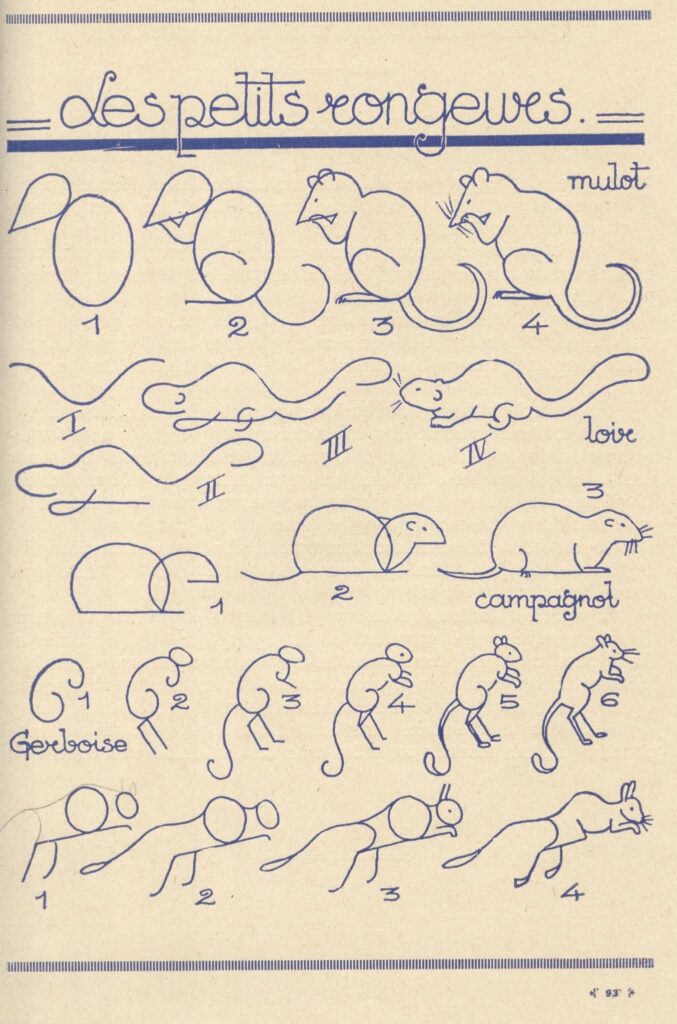 Les petits rongeurs.
mulot
1 2 3 4
I II III IV
loir
1 2 3
campagnol
1 2 3 4 5 6
Gerboise
1 2 3 4
93